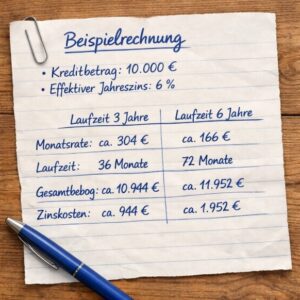 Beispielrechnung
• Kreditbetrag: 10.000 €
• Effektiver Jahreszins: 6 %
Laufzeit 3 Jahre Laufzeit 6 Jahre
Monatsrate: ca. 304 € ca. 166 €
Laufzeit: 36 Monate 72 Monate
Gesamtbebog: ca. 10.944 € ca. 11.952 €
Zinskosten: ca. 944 € ca. 1.952 €